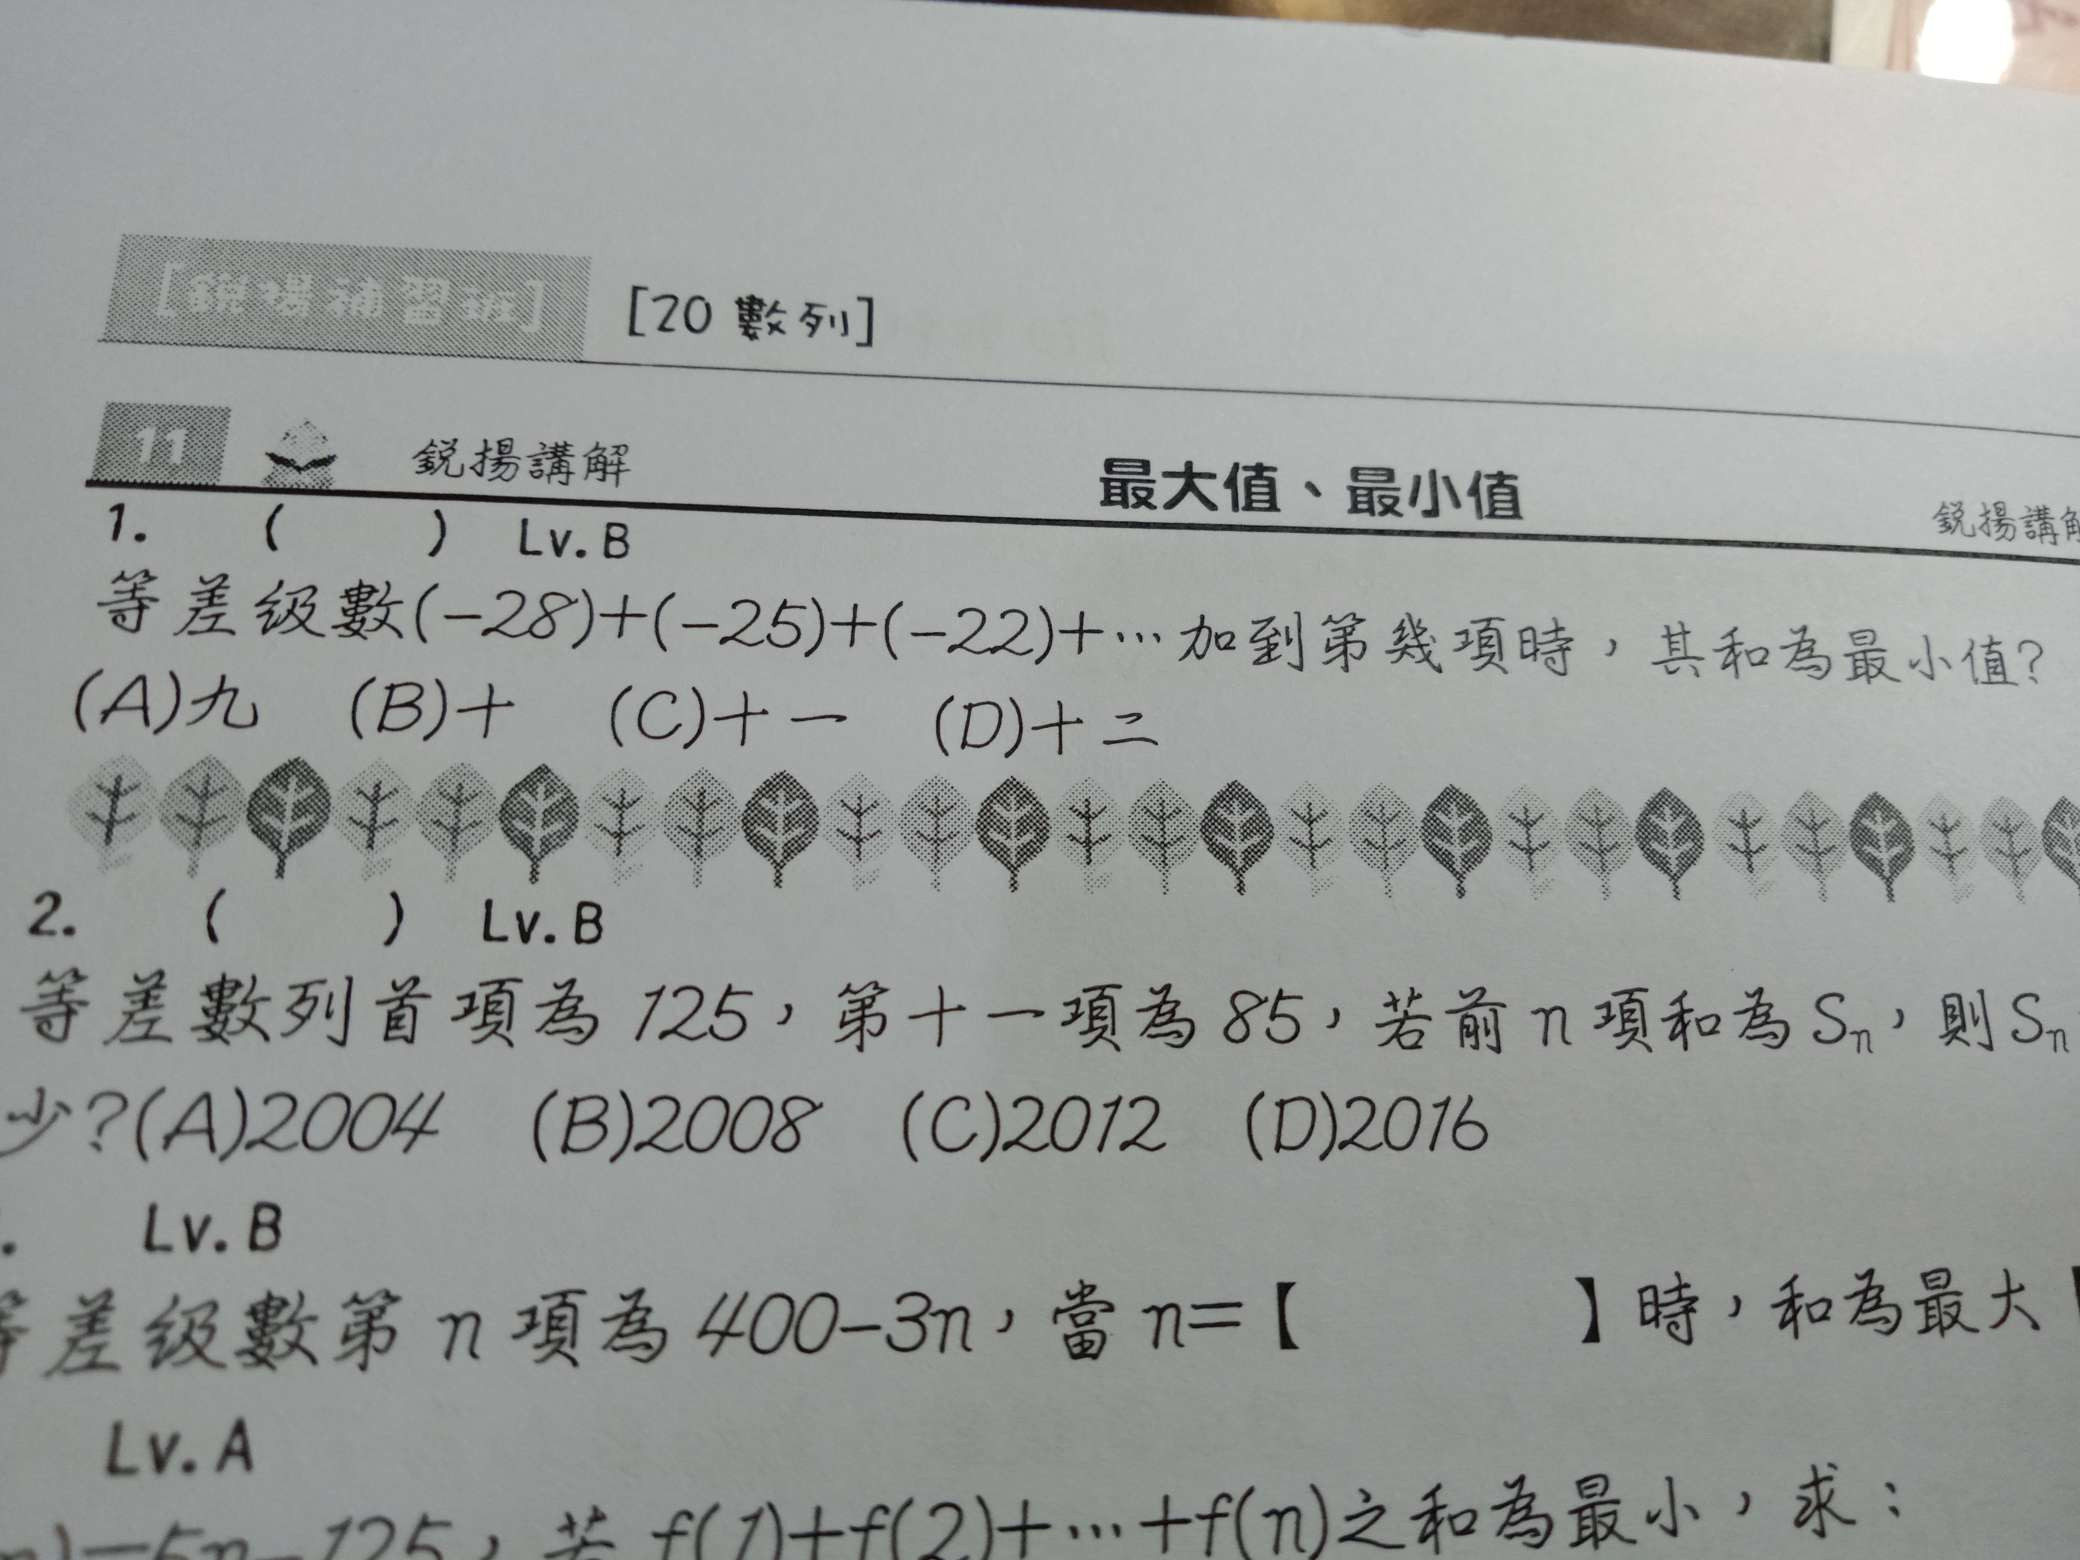 [銳揚補習班] [20 數列]
11 銳揚講解 最大值、最小值 銳揚講解
1. ( ) Lv.B
等差级數(-28)+(-25)+(-22)+…加到第幾項時，其和為最小值?
(A)九 (B)十 (C)十一 (D)十二
2. ( ) Lv.B
等差數列首項為 125，第十一項為 85，若前 n 項和為 Sₙ，則 Sₙ
少?(A)2004 (B)2008 (C)2012 (D)2016
. Lv.B
等差级數第 n 項為 400-3n，當 n=【 】時，和為最大【
Lv.A
n)=5n-125，若 f(1)+f(2)+…+f(n)之和為最小，求：